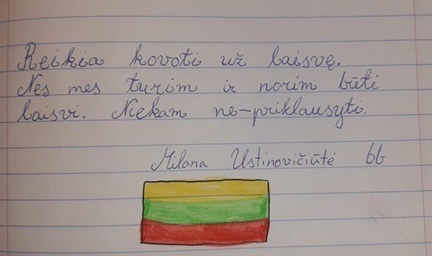 Reikia kovoti už laisvę.
Nes mes turim ir norim būti
laisvi. Niekam ne-priklausyti.
Milana Ustinovičiūtė 6b